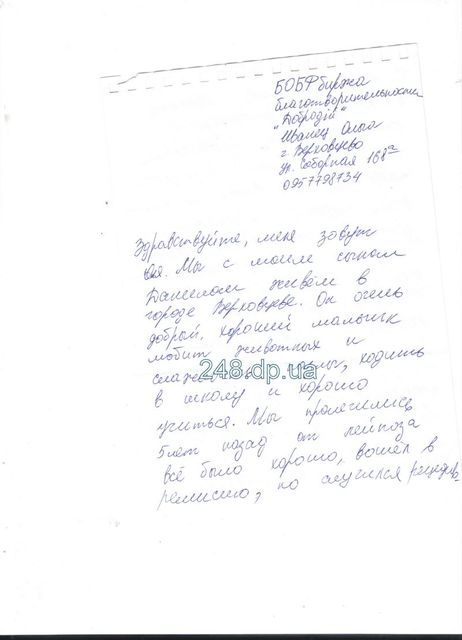 БОБФ биржа
благотворительности
"Добродій"
Иванец Ольга
г. Верховцево
ул. Соборная 168а
0957798134
Здравствуйте, меня зовут
Оля. Мы с моим сыном
Даниилом живём в
городе Верховцеве. Он очень
добрый, хороший мальчик
любит животных и
248.dp.ua
ходить
в школу и хорошо
учиться. Мы пролечились
5 лет назад от лейкоза
всё было хорошо, вошёл в
ремиссию, но случился рецидив